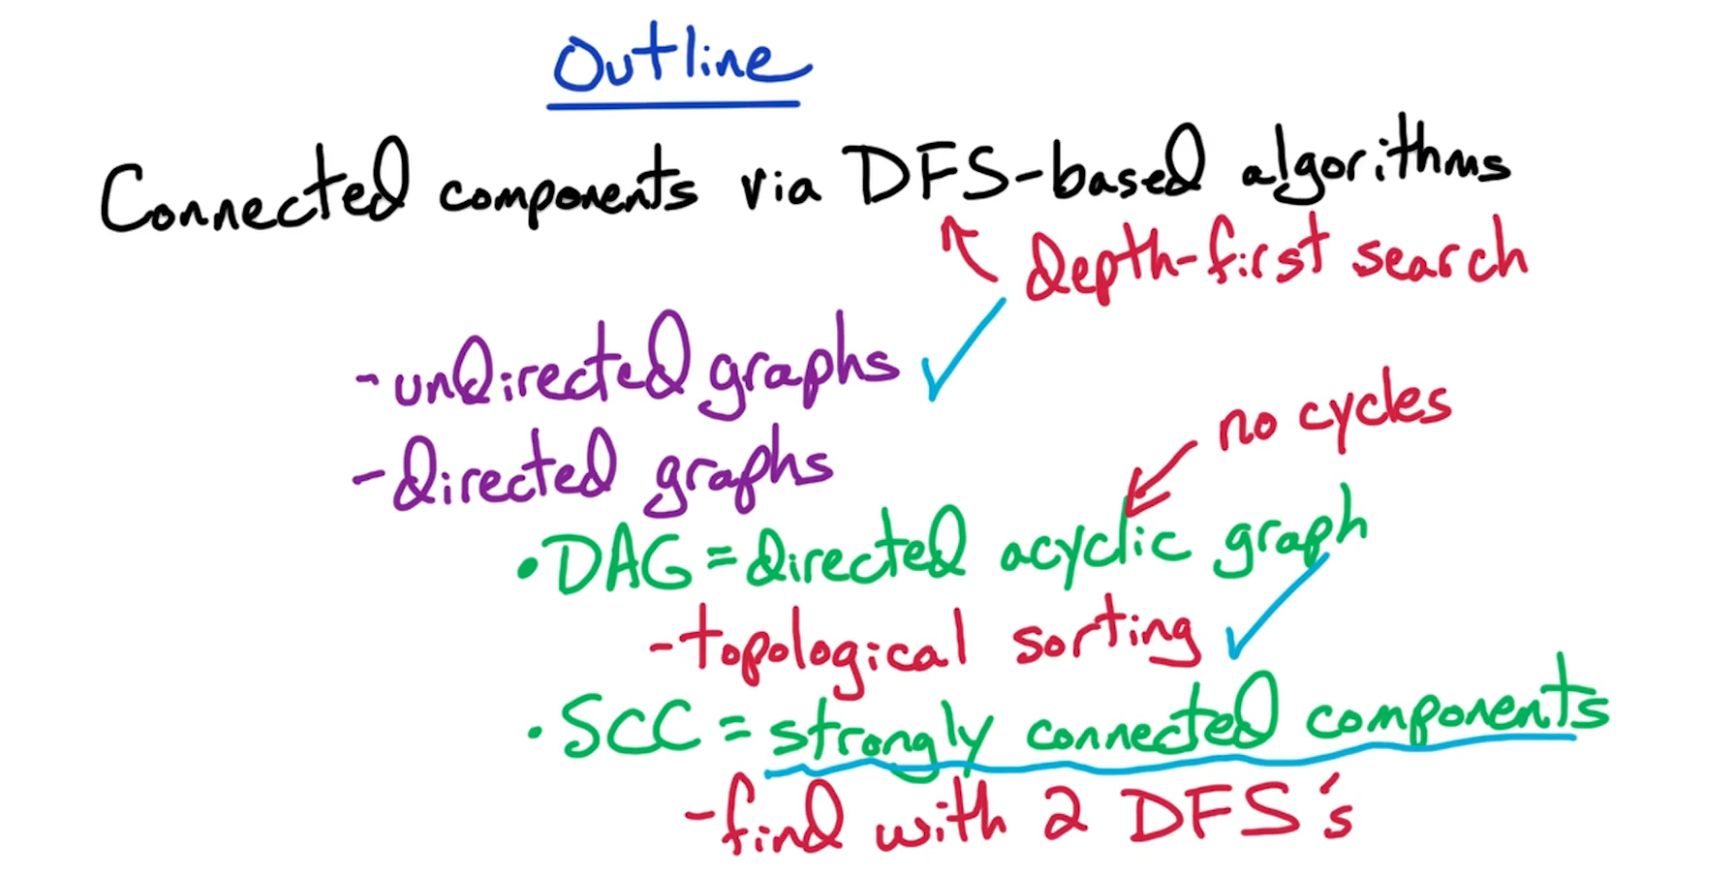 Outline
Connected components via DFS-based algorithms
depth-first search
-undirected graphs
no cycles
-directed graphs
•DAG=directed acyclic graph
-topological sorting
•SCC=strongly connected components
-find with 2 DFS's